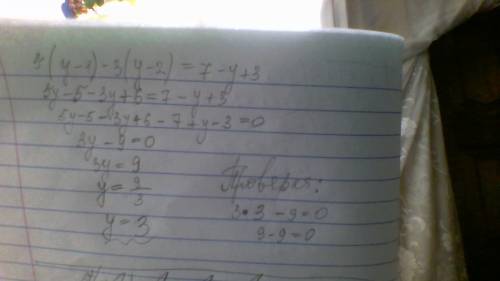 5(y-1)-3(y-2)=7-y+3
5y-5-3y+6=7-y+3
5y-5-3y+6-7+y-3=0
3y-9=0
3y=9
y=9/3
y=3
Проверка:
3•3-9=0
9-9=0